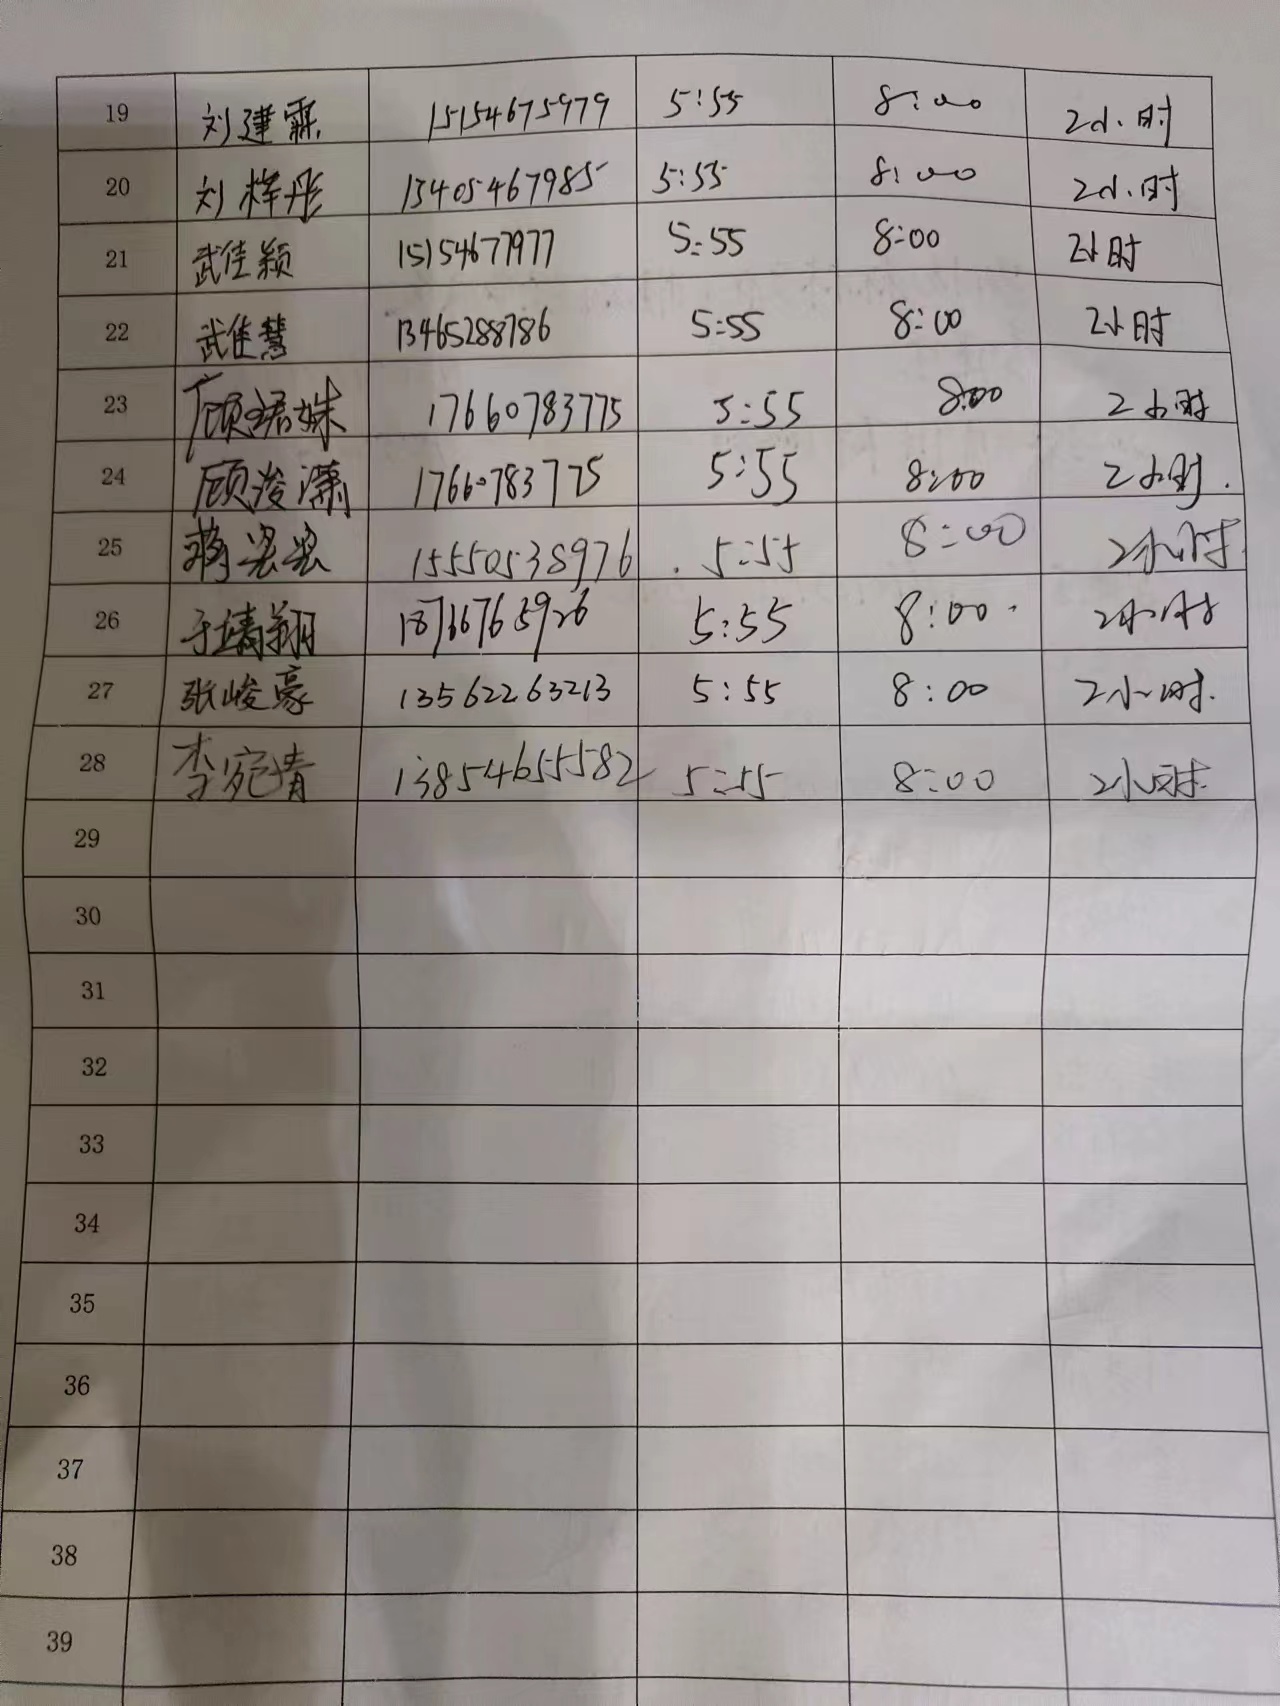 19 刘建霖 15154675979 5:55 8:00 2小时
20 刘梓彤 13405467985 5:55 8:00 2小时
21 武佳颖 15154677977 5:55 8:00 2小时
22 武佳慧 13465288786 5:55 8:00 2小时
23 顾珺姝 17660783775 5:55 8:00 2小时
24 顾浚潇 17660783775 5:55 8:00 2小时.
25 蒋 15550538976 5:55 8:00 2小时
26 于靖翔 18716765926 5:55 8:00 2小时
27 张峻豪 13562263213 5:55 8:00 2小时.
28 李宛青 13854655582 5:55 8:00 2小时
29
30
31
32
33
34
35
36
37
38
39